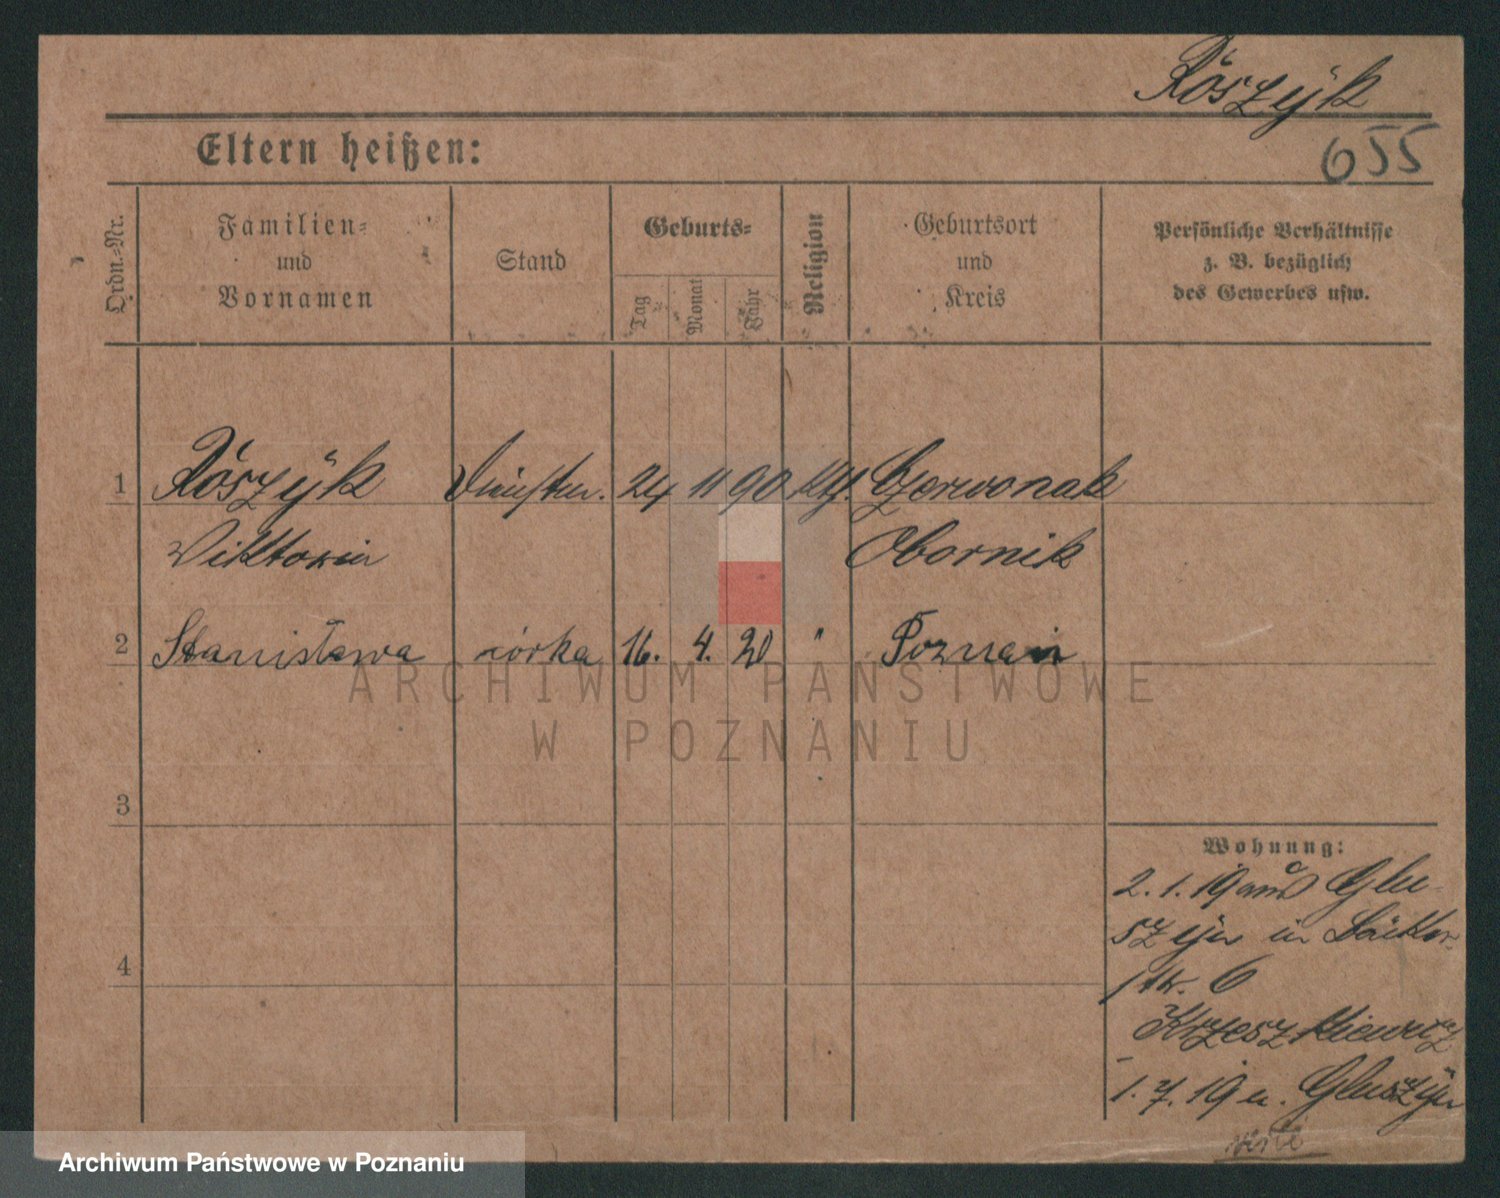 Kószÿk
655
Eltern heißen:
Ordn.-Nr.
Familien-
und
Vornamen
Stand
Geburts-
Tag
Monat
Jahr
Religion
Geburtsort
und
Kreis
Persönliche Verhältnisse
z. B. bezüglich
des Gewerbes usw.
1 Kószÿk 24 11 90 kth. Czerwonak
Viktoria Obornik
2 Stanisława córka 16. 4. 20 " Poznań
ARCHIWUM PAŃSTWOWE
W POZNANIU
3
Wohnung:
2. 1. 19 aus Glu-
szÿn in
4
str. 6
Krzeszkiewicz
1. 7. 19 n. Gluszÿn
Archiwum Państwowe w Poznaniu